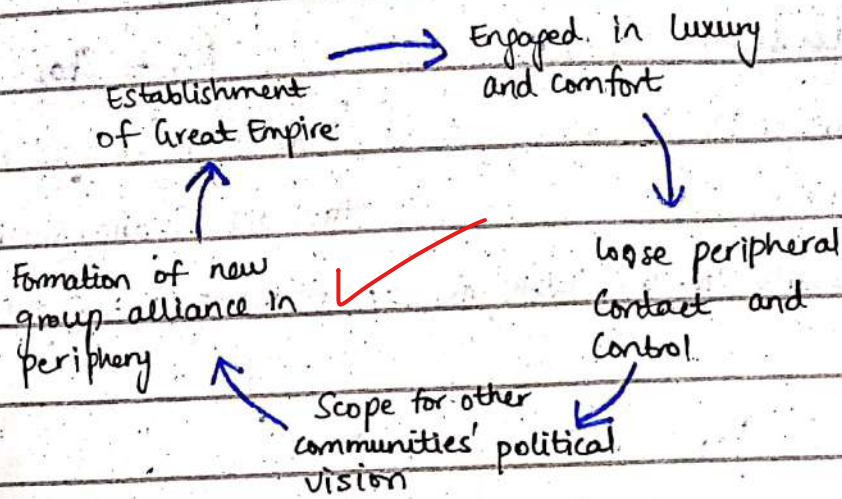 Establishment
of Great Empire
Engaged in luxury
and comfort
loose peripheral
Contact and
Control
Scope for other
communities' political
vision
Formation of new
group alliance in
periphery